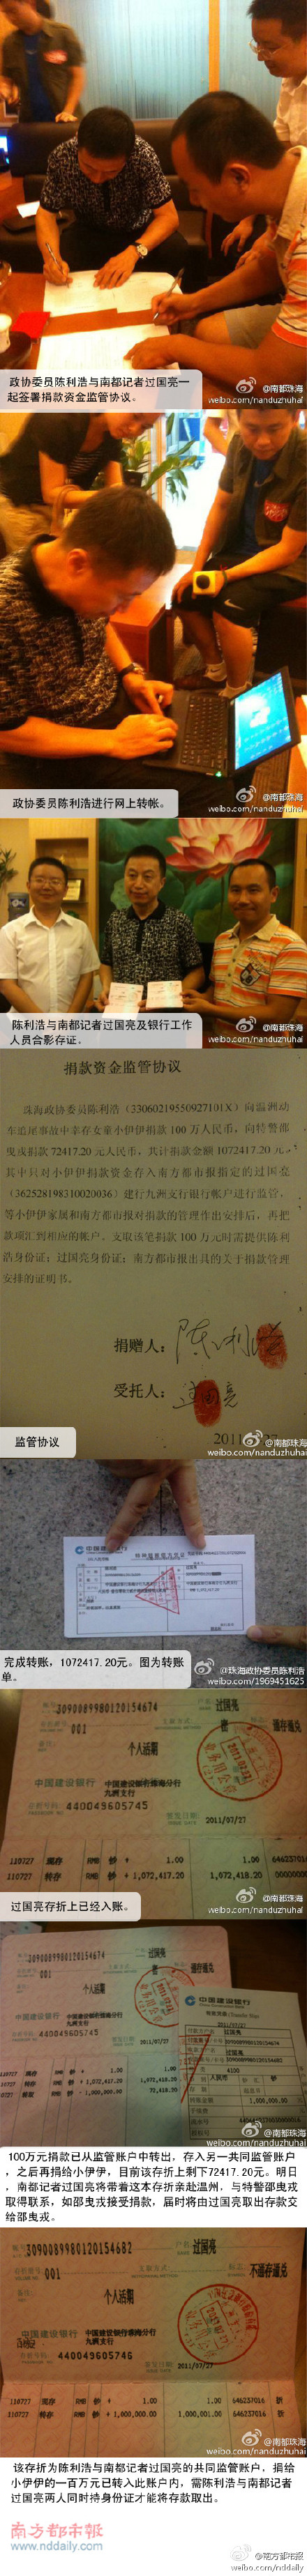 政协委员陈利浩与南都记者过国亮一
起签署捐款资金监管协议。
@南都珠海
weibo.com/nanduzhuhai
政协委员陈利浩进行网上转帐。
@南都珠海
weibo.com/nanduzhuhai
陈利浩与南都记者过国亮及银行工作
人员合影存证。
@南都珠海
weibo.com/nanduzhuhai
捐款资金监管协议
珠海政协委员陈利浩（33060219550927101X）向温洲动
车追尾事故中幸存女童小伊伊捐款 100 万人民币，向特警邵
曳戎捐款 72417.20 元人民币，共计捐款金额 1072417.20 元。
其中只对小伊伊捐款资金存入南方都市报指定的过国亮
（362528198310020036）建行九洲支行银行帐户进行监管，
等小伊伊家属和南方都市报对捐款的管理作出安排后，再把
款项汇到相应的帐户。支取该笔捐款 100 万时需提供陈利
浩身份证；过国亮身份证；南方都市报出具的关于捐款管理
安排的证明书。
捐赠人：陈利浩
受托人：过国亮
监管协议
@南都珠海
weibo.com/nanduzhuhai
中国建设银行
完成转账，1072417.20元。图为转账
单。
@珠海政协委员陈利浩
weibo.com/1969451625
3090089980120154674
过国亮
001
密
通存通兑
个人活期
中国建设银行
中国建设银行珠海分行
九洲支行
440049605745
2011/07/27
110727 现存 RMB 钞 + 1.00 1.00 646237016
110727 转存 RMB 钞 + 1,072,417.20 1,072,418.20
过国亮存折上已经入账。
@南都珠海
weibo.com/nanduzhuhai
3090089980120154674
过国亮
001
通存通兑
个人活期
中国建设银行
九洲支行
440049605745
2011/07/27
中国建设银行
@南都珠海
weibo.com/nanduzhuhai
100万元捐款已从监管账户中转出，存入另一共同监管账户
，之后再捐给小伊伊，目前该存折上剩下72417.20元。明日
，南都记者过国亮将带着这本存折亲赴温州，与特警邵曳戎
取得联系，如邵曳戎接受捐款，届时将由过国亮取出存款交
给邵曳戎。
3090089980120154682
过国亮
001
不通存通兑
个人活期
中国建设银行
中国建设银行珠海分行
九洲支行
440049605746
2011/07/27
110727 现存 RMB 钞 + 1.00 1.00 646237016 折
110727 转存 RMB 钞 + 1,000,000.00 1,000,001.00 646237016 折
@南都珠海
weibo.com/nanduzhuhai
该存折为陈利浩与南都记者过国亮的共同监管账户，捐给
小伊伊的一百万元已转入此账户内，需陈利浩与南都记者
过国亮两人同时持身份证才能将存款取出。
南方都市报
www.nddaily.com
@南方都市报
weibo.com/nddaily